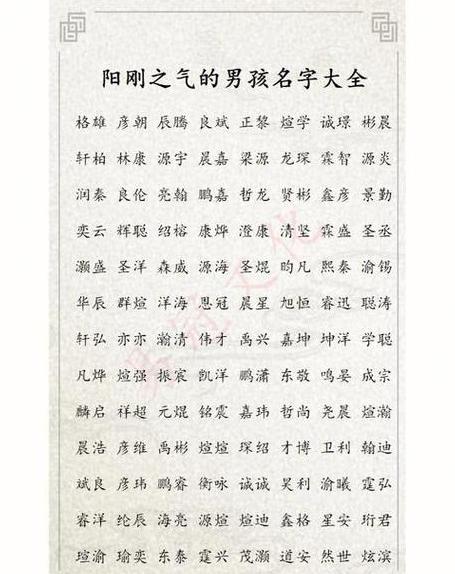 阳刚之气的男孩名字大全
格雄 彦朝 辰腾 良斌 正黎 煊学 诚璟 彬晨
轩柏 林康 源宇 晨嘉 梁源 龙琛 霖智 源炎
润秦 良伦 亮翰 鹏嘉 哲龙 贤彬 鑫彦 景勤
奕云 辉聪 绍榕 康烨 澄康 清坚 霖盛 圣丞
灏盛 圣洋 森威 源海 圣焜 昀凡 熙秦 渝锡
华辰 群煊 洋海 恩冠 晨星 旭恒 睿迅 聪涛
轩弘 亦亦 瀚清 伟才 禹兴 嘉坤 坤洋 学聪
凡烨 煊强 振宸 凯洋 鹏潇 东敬 鸣晏 成宗
麟启 祥超 元焜 铭震 嘉玮 哲尚 尧晨 煊瀚
晨浩 彦维 禹彬 煊煊 琛绍 才博 卫利 翰迪
斌良 彦玮 鹏睿 衡咏 诚诚 昊利 渝曦 霆弘
睿洋 纶辰 海亮 源煊 煊迪 鑫格 星安 珩君
瑄渝 瑜奕 东泰 霆兴 茂灏 道安 然世 炫滨